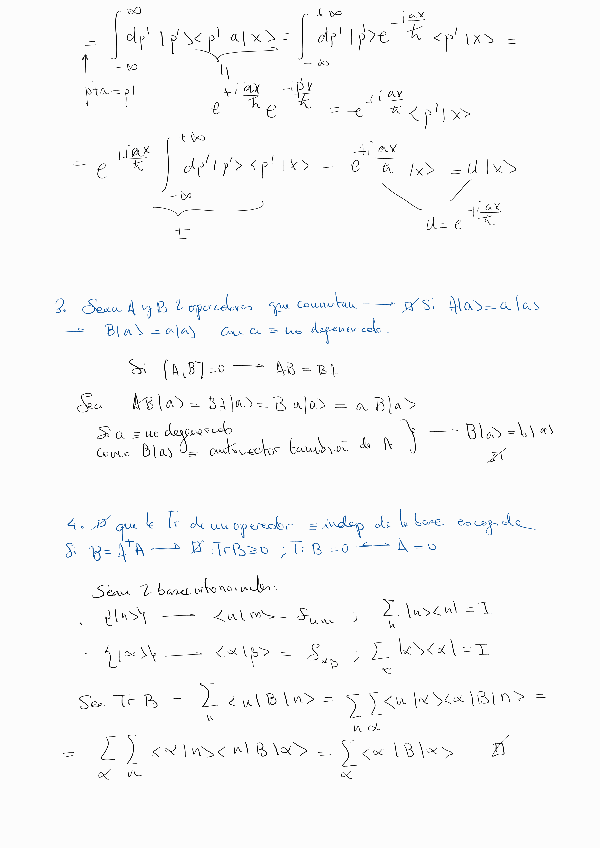 = ∫_{-∞}^{∞} dp' |p'> <p' a|x> = ∫_{-∞}^{+∞} dp' |p'> e^{-i ax/ħ} <p'|x> =
p+a = p'
e^{+i ax/ħ} e^{-ip'x/ħ} = e^{+i ax/ħ} <p'|x>
= e^{+i ax/ħ} ∫_{-∞}^{+∞} dp' |p'> <p'|x> = e^{+i ax/ħ} |x> = U|x>
I
U = e^{+i ax/ħ}
3. Sean A y B, 2 operadores que conmutan → Si A|a> = a|a>
→ B|a> = a|a> con a ≡ no degenerado.
Si [A,B] = 0 → AB = BA
Sea AB|a> = BA|a> = B a|a> = a B|a>
Si a ≡ no degenerado
como B|a> ≡ autovector también de A } → B|a> = b|a>
4. que la Tr de un operador ≡ indep de la base escogida
Si B = A⁺A → TrB ≥ 0 ; Tr B = 0 ↔ A = 0
Sean 2 bases ortonormales:
· {|n>} → <n|m> = δ_{nm} ; Σ_n |n><n| = I
· {|α>} → <α|β> = δ_{αβ} ; Σ_α |α><α| = I
Sea Tr B = Σ_n <n|B|n> = Σ_n Σ_α <n|α><α|B|n> =
= Σ_α Σ_n <α|n><n|B|α> = Σ_α <α|B|α>